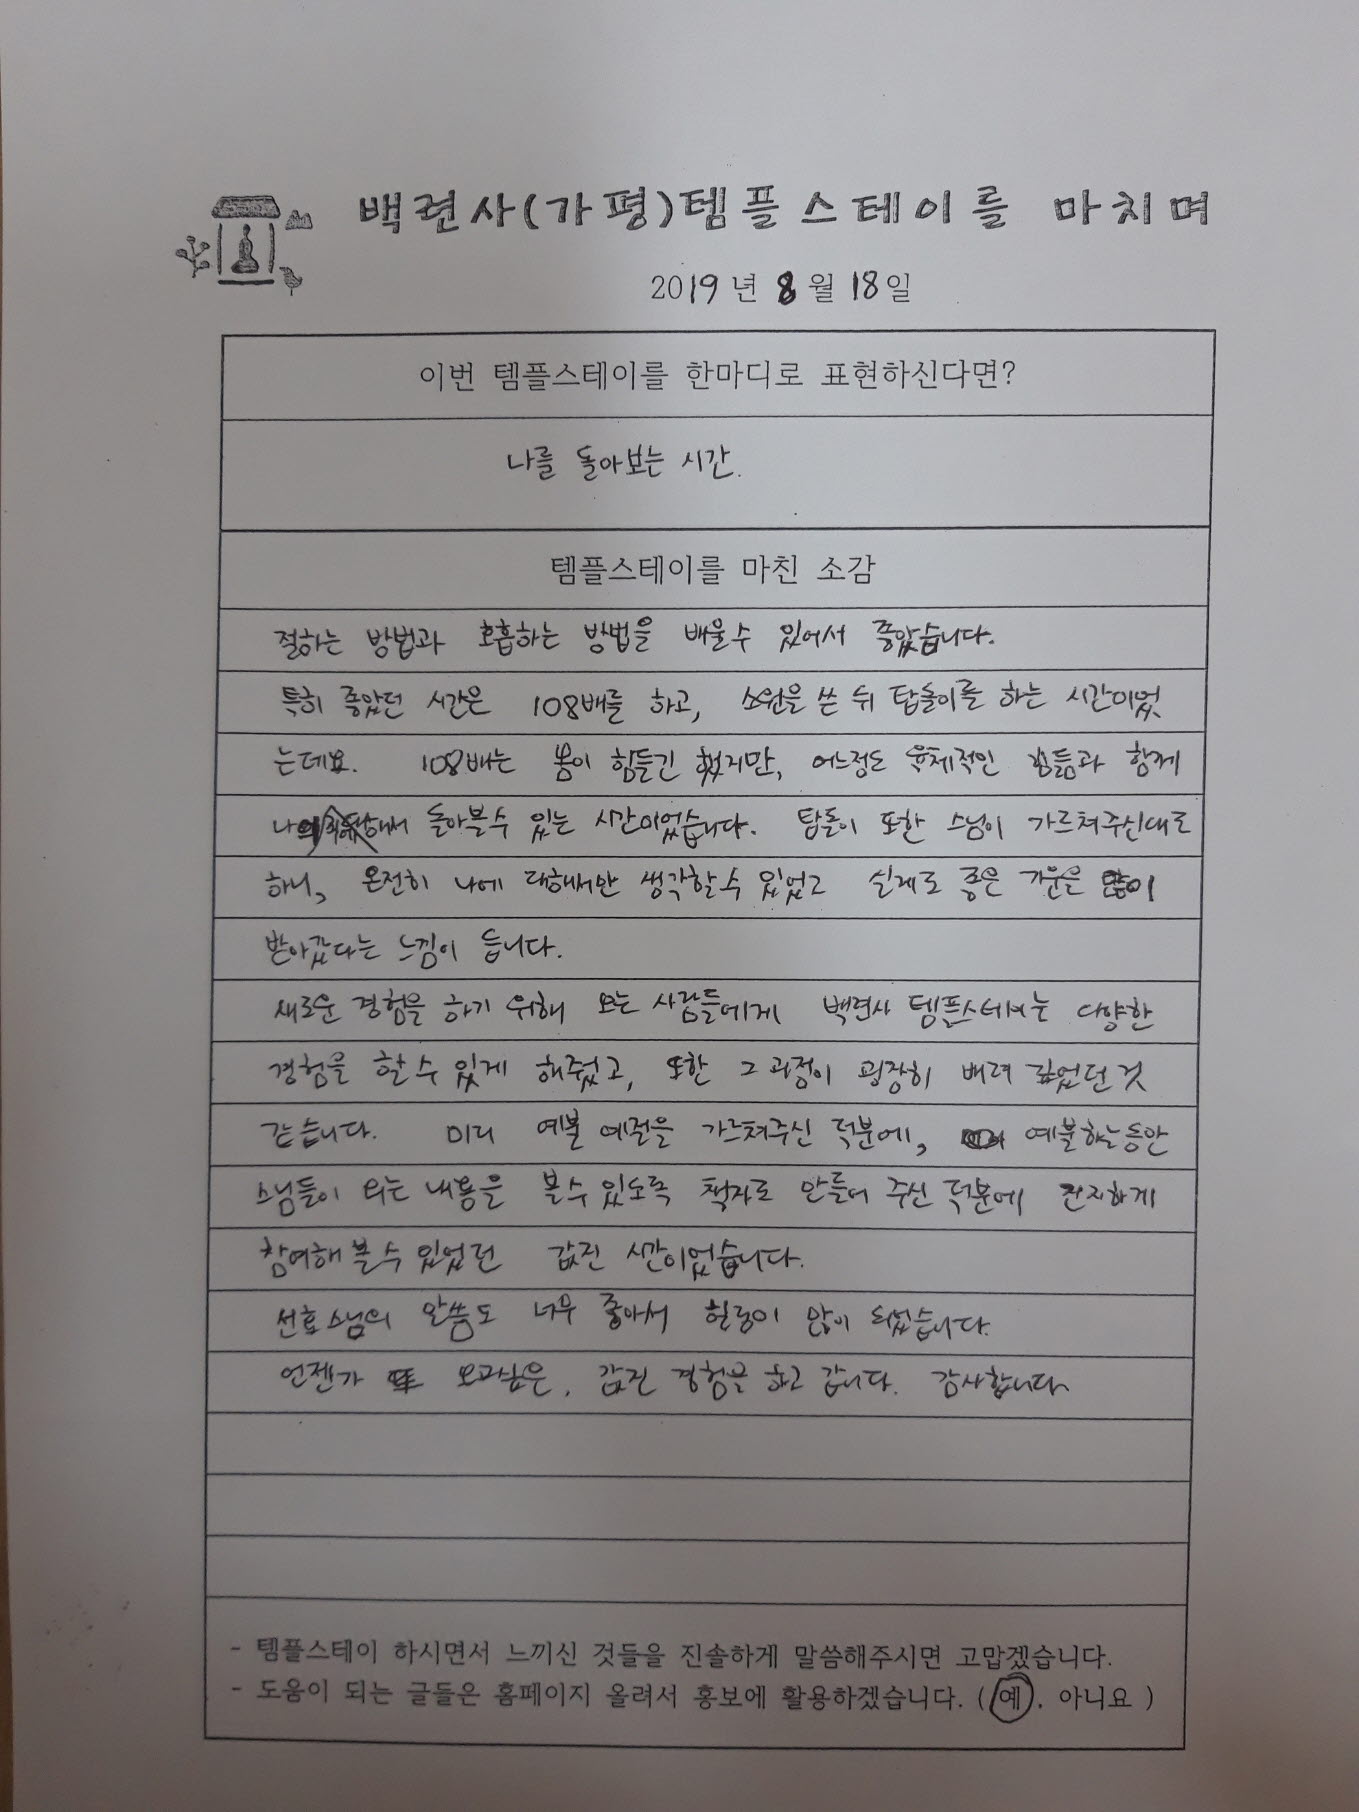 백련사(가평)템플스테이를 마치며
2019년 8월 18일
이번 템플스테이를 한마디로 표현하신다면?
나를 돌아보는 시간.
템플스테이를 마친 소감
절하는 방법과 호흡하는 방법을 배울수 있어서 좋았습니다.
특히 좋았던 시간은 108배를 하고, 소원을 쓴 뒤 탑돌이를 하는 시간이었
는데요. 108배는 몸이 힘들긴 했지만, 어느정도 육체적인 힘듦과 함께
나 돌아볼수 있는 시간이었습니다. 탑돌이 또한 스님이 가르쳐주신대로
하니, 온전히 나에 대해서만 생각할수 있었고 실제로 좋은 기운을 많이
받아갔다는 느낌이 듭니다.
새로운 경험을 하기 위해 오는 사람들에게 백련사 템플스테이는 다양한
경험을 할수 있게 해주었고, 또한 그 과정이 굉장히 배려 깊었던 것
같습니다. 미리 예불 예절을 가르쳐주신 덕분에, 예불하는동안
스님들이 외는 내용을 볼수 있도록 책자로 만들어 주신 덕분에 진지하게
참여해 볼수 있었던 값진 시간이었습니다.
선효스님의 말씀도 너무 좋아서 힐링이 많이 되었습니다.
언젠가 또 오고싶은, 값진 경험을 하고 갑니다. 감사합니다
- 템플스테이 하시면서 느끼신 것들을 진솔하게 말씀해주시면 고맙겠습니다.
- 도움이 되는 글들은 홈페이지 올려서 홍보에 활용하겠습니다. ( 예 . 아니요 )